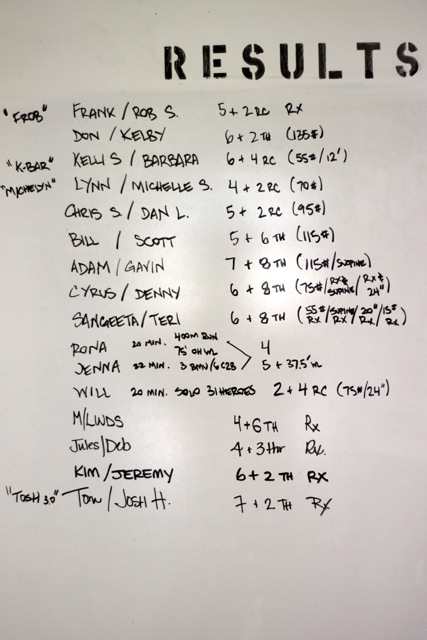 RESULTS
"FROB" FRANK / ROB S. 5 + 2 RC RX
DON / KELBY 6 + 2 TH (135#)
"K-BAR" KELLI S / BARBARA 6 + 4 RC (55#/12')
"MICHELYN" LYNN / MICHELLE S. 4 + 2 RC (70#)
CHRIS S. / DAN L. 5 + 2 RC (95#)
BILL / SCOTT 5 + 6 TH (115#)
ADAM / GAVIN 7 + 8 TH (115#/SUPINE)
CYRUS / DENNY 6 + 8 TH (75#/SUPINE/24"
SANGEETA / TERI 6 + 8 TH (55#/SUPINE/20"/15#
RX / RX / RX / RX)
RONA 20 MIN. 400M RUN 4
75' OH WL
JENNA 22 MIN. 3 BMU/6 C2B 5 + 37.5' WL
WILL 20 MIN. SOLO 31 HEROES 2 + 4 RC (75#/24")
M/LINDS 4+6 TH RX
Jules/Deb 4 + 3 thr Rx.
KIM / JEREMY 6 + 2 TH RX
"TOSH 3.0" Tom / JOSH H. 7 + 2 TH RX